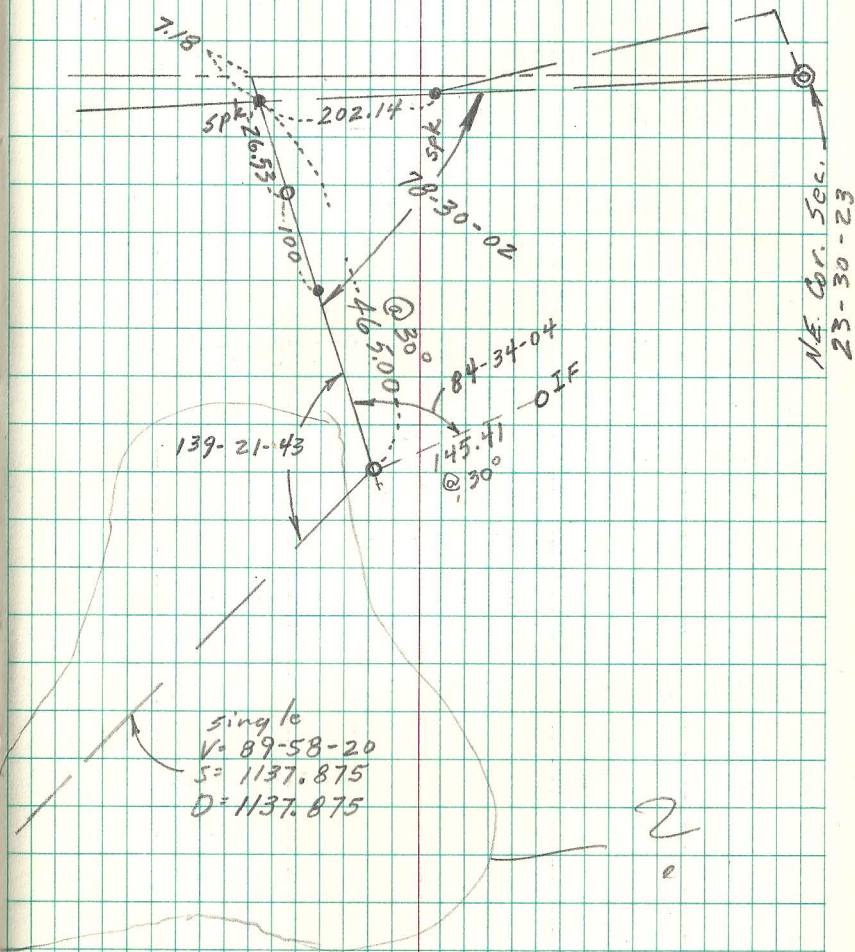 7.18
spk
202.14
spk
26.53
100
78-30-02
@ 30°
465.00
84-34-04
IF
139-21-43
145.41
@ 30°
N.E. Cor. Sec.
23-30-23
single
V= 89-58-20
S= 1137.875
D= 1137.875
?